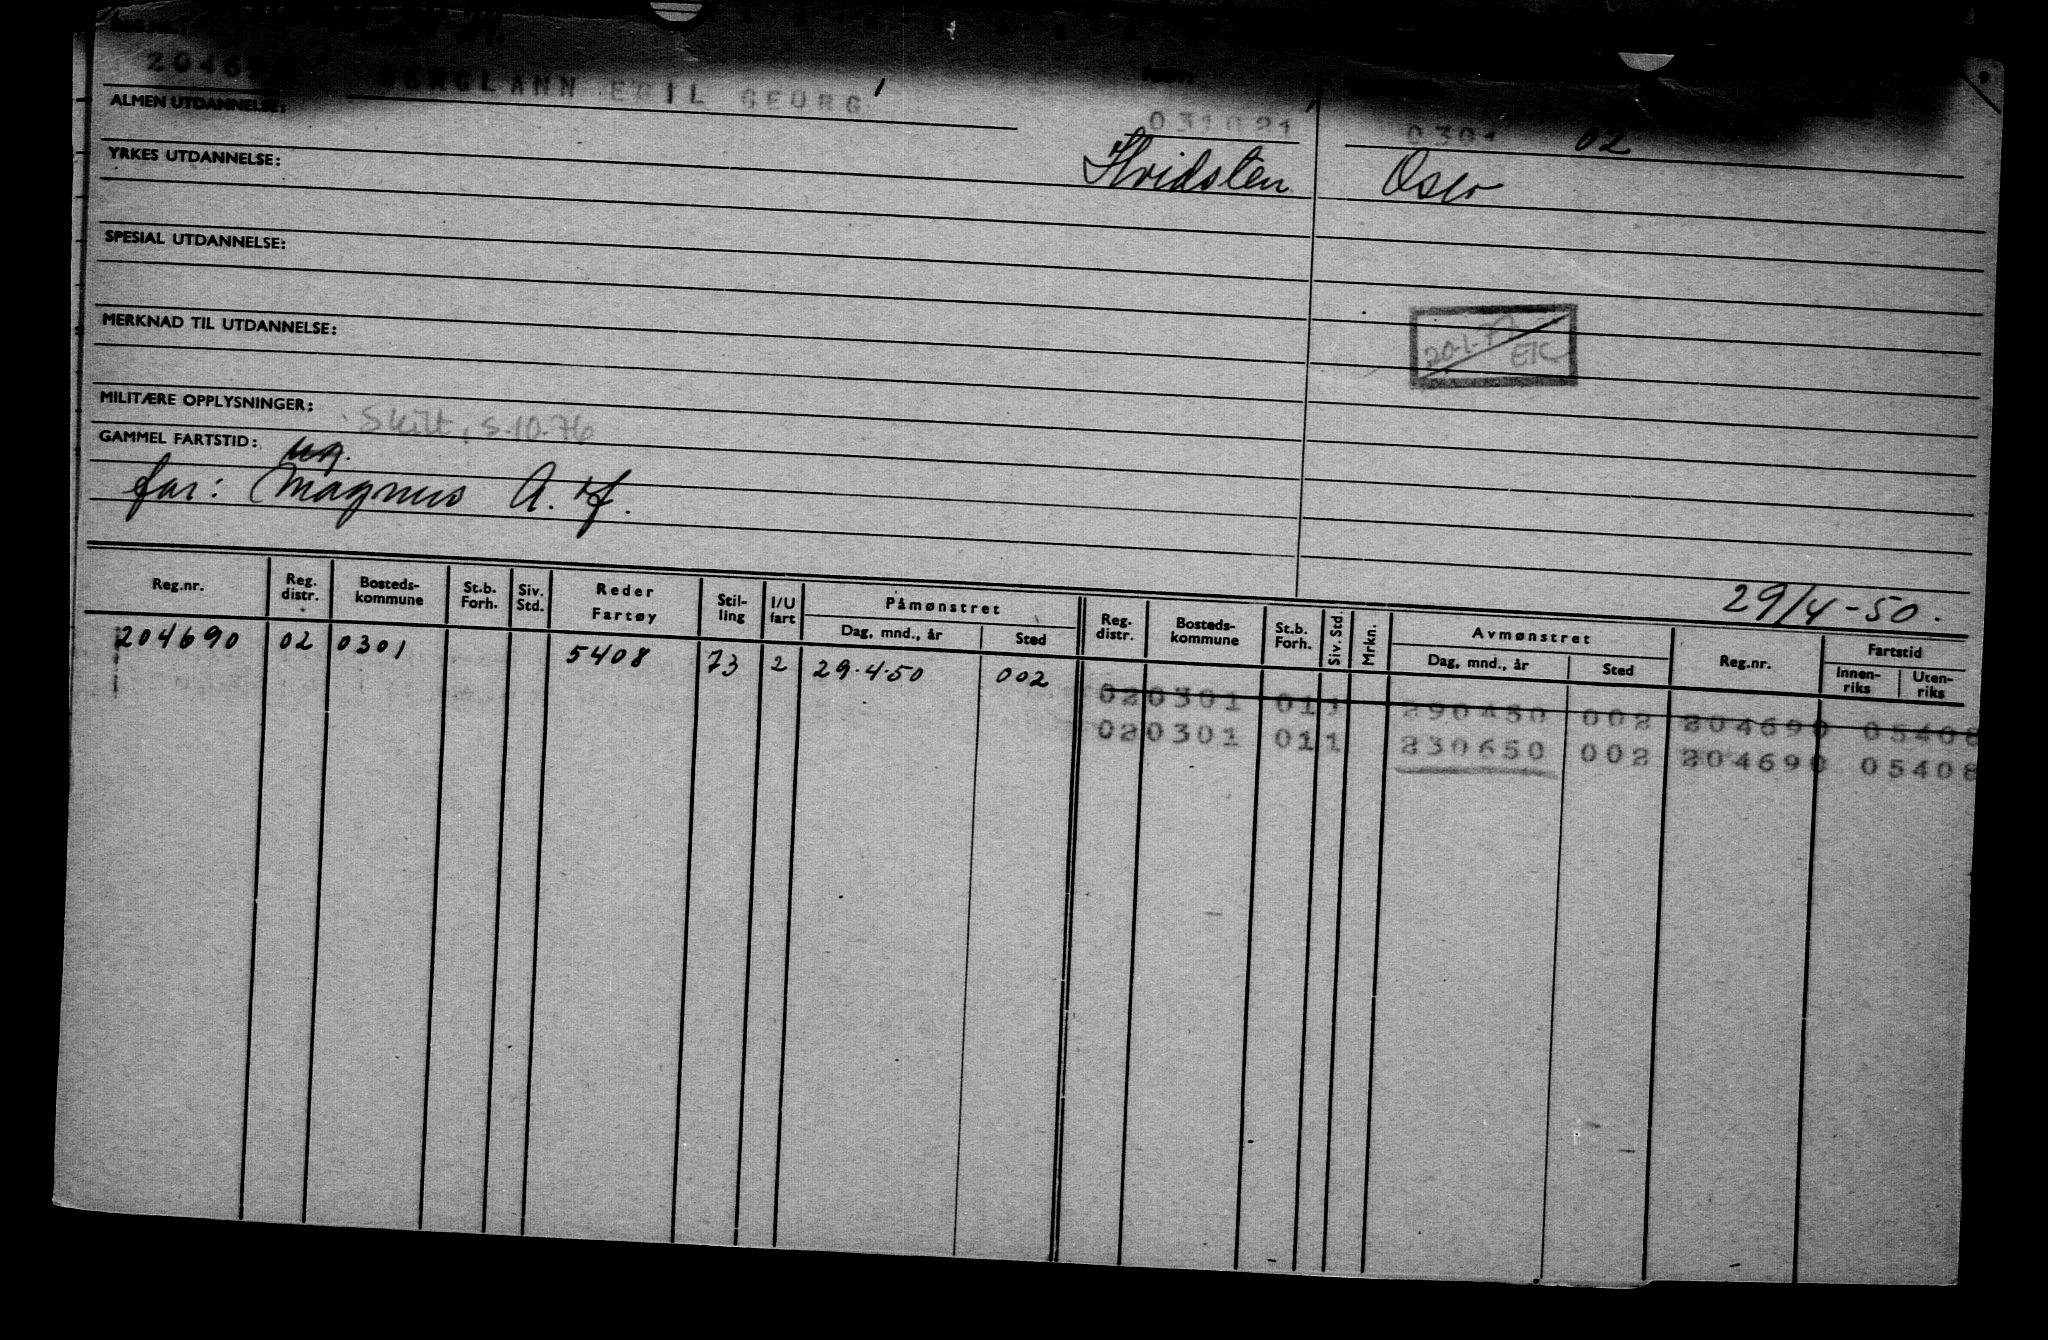 EGIL GEORG
ALMEN UTDANNELSE:
0301 02
YRKES UTDANNELSE:
Hvidsten Oslo
SPESIAL UTDANNELSE:
MERKNAD TIL UTDANNELSE:
20-1-77
EK
MILITÆRE OPPLYSNINGER:
Skilt, 5.10.76
GAMMEL FARTSTID: ug.
far: Magnus A. H.
29/4-50.
Reg.nr. Reg. distr. Bosteds-kommune St.b. Forh. Siv. Std. Reder Fartøy Stil-ling I/U fart Påmønstret Dag, mnd., år Sted Reg. distr. Bosteds-kommune St.b. Forh. Siv. Std. Mrkn. Avmønstret Dag, mnd., år Sted Reg.nr. Fartstid Innen-riks Uten-riks
204690 02 0301 5408 73 2 29.4.50 002
02 0301 01 1 290450 002 204690 05408
02 0301 01 1 230650 002 204690 05408